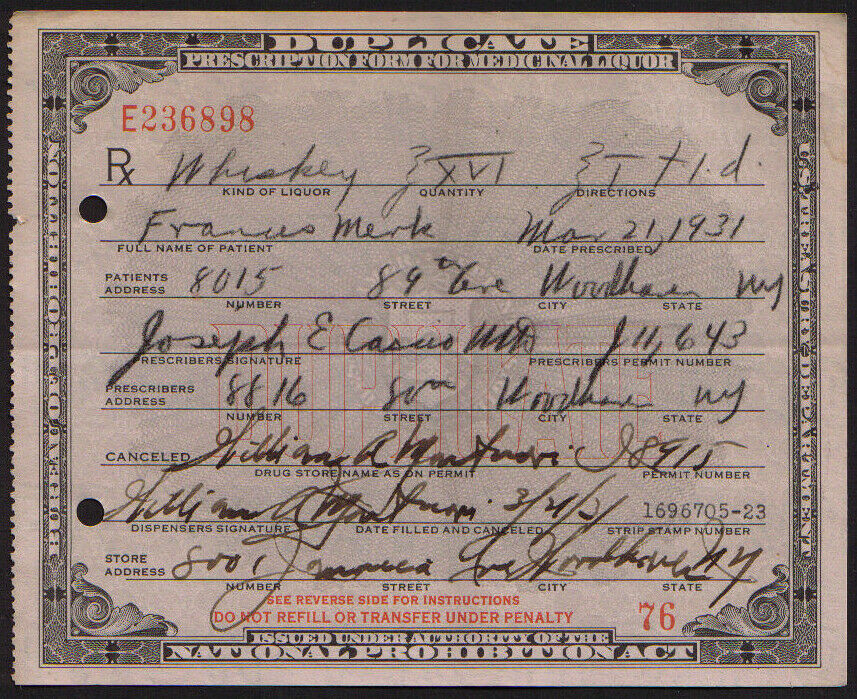 DUPLICATE
PRESCRIPTION FORM FOR MEDICINAL LIQUOR
E236898
Rx Whiskey ℥XVI ℥I t.i.d.
KIND OF LIQUOR QUANTITY DIRECTIONS
Frances Merk Mar 21, 1931
FULL NAME OF PATIENT DATE PRESCRIBED
PATIENTS ADDRESS 8015 89th Ave Woodhaven NY
NUMBER STREET CITY STATE
Joseph E Cascio MD J11,643
PRESCRIBERS SIGNATURE PRESCRIBERS PERMIT NUMBER
PRESCRIBERS ADDRESS 8816 80th Woodhaven NY
NUMBER STREET CITY STATE
DUPLICATE
CANCELED William A 8915
DRUG STORE NAME AS ON PERMIT PERMIT NUMBER
William A 3/21/31 1696705-23
DISPENSERS SIGNATURE DATE FILLED AND CANCELED STRIP STAMP NUMBER
STORE ADDRESS 8001 Jamaica Ave Woodhaven NY
NUMBER STREET CITY STATE
SEE REVERSE SIDE FOR INSTRUCTIONS
DO NOT REFILL OR TRANSFER UNDER PENALTY 76
ISSUED UNDER AUTHORITY OF THE
NATIONAL PROHIBITION ACT